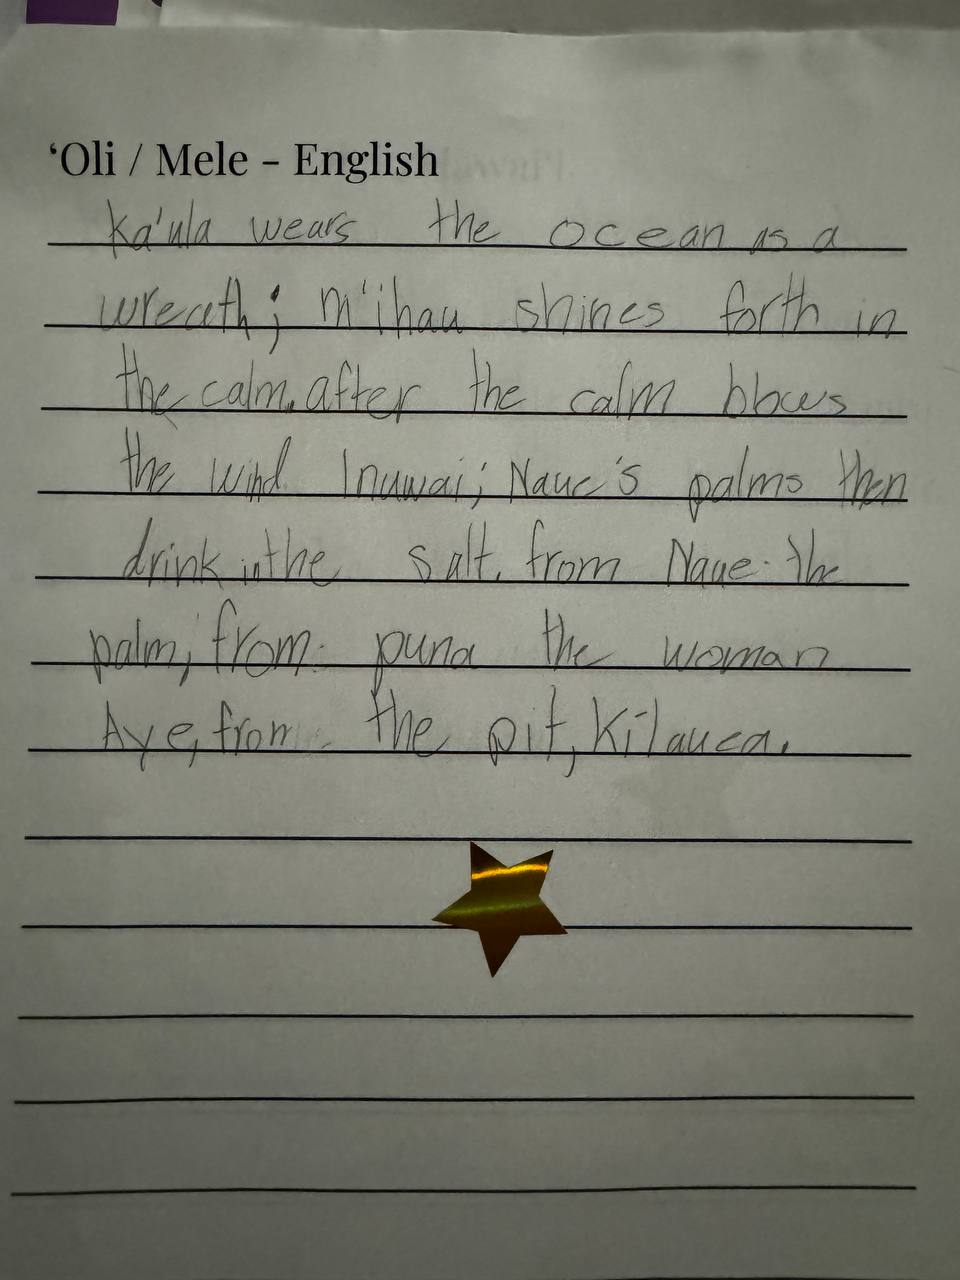 ʻOli / Mele - English
Ka'ula wears the ocean as a
wreath; m'ihau shines forth in
the calm. after the calm blows
the wind Inuwai; Naue's palms then
drink in the salt. from Naue the
palm, from puna the woman
Aye, from the pit, Kīlauea.